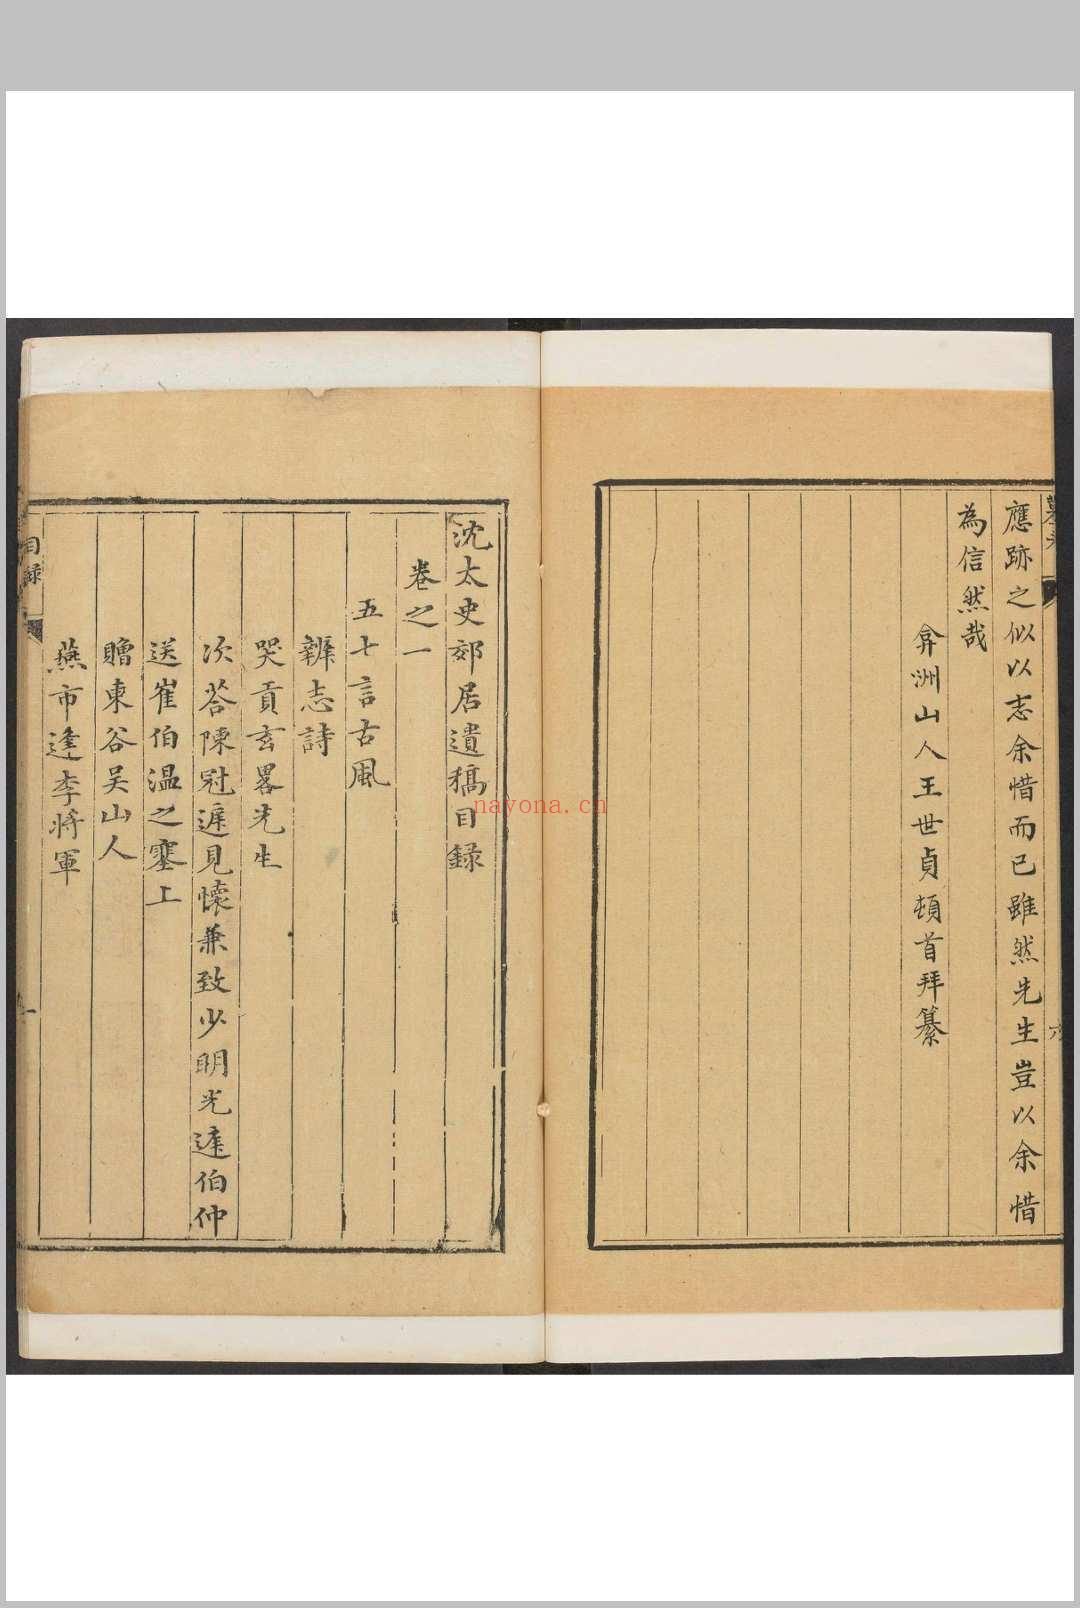 應跡之似以志余惜而已雖然先生豈以余惜
為信然哉
弇洲山人王世貞頓首拜纂
六
沈太史郊居遺稿目錄
卷之一
五七言古風
辨志詩
哭貢玄畧先生
次荅陳冠遲見懷兼致少明光逵伯仲
送崔伯温之塞上
贈東谷吴山人
燕市逢李將軍
目録
一
nayona.cn